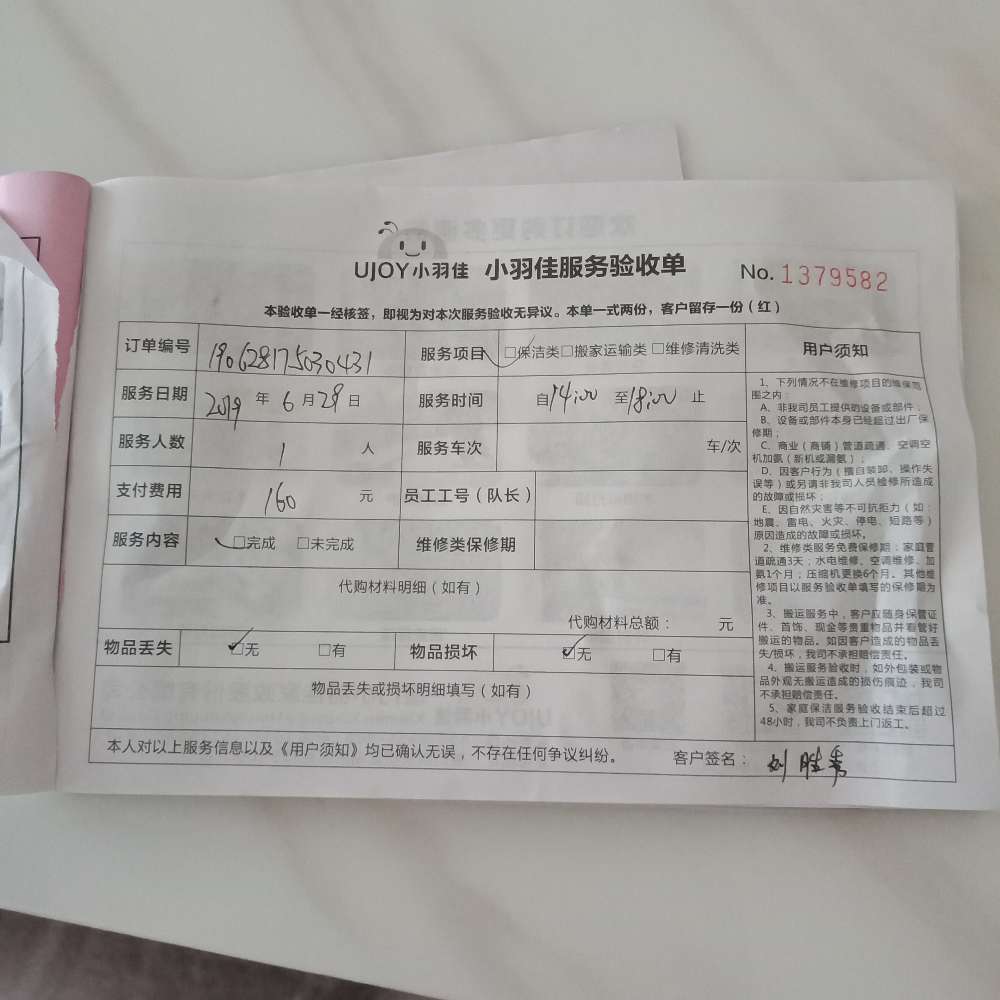 UJOY小羽佳 小羽佳服务验收单 No. 1379582
本验收单一经核签，即视为对本次服务验收无异议。本单一式两份，客户留存一份（红）
订单编号 190628175030431 服务项目 □保洁类□搬家运输类 □维修清洗类
服务日期 2019 年 6 月 29 日 服务时间 自 14:00 至 18:00 止
服务人数 1 人 服务车次 车/次
支付费用 160 元 员工工号（队长）
服务内容 □完成 □未完成 维修类保修期
代购材料明细（如有）
代购材料总额： 元
物品丢失 ☑无 □有 物品损坏 ☑无 □有
物品丢失或损坏明细填写（如有）
本人对以上服务信息以及《用户须知》均已确认无误，不存在任何争议纠纷。 客户签名： 刘胜秀
用户须知
1、下列情况不在维修项目的维保范
围之内：
A、非我司员工提供的设备或部件；
B、设备或部件本身已经超过出厂保
修期；
C、商业（商铺）管道疏通、空调空
机加氨（新机或漏氨）；
D、因客户行为（擅自装卸、操作失
误等）或另请非我司人员检修所造成
的故障或损坏；
E、因自然灾害等不可抗拒力（如：
地震、雷电、火灾、停电、短路等）
原因造成的故障或损坏。
2、维修类服务免费保修期：家庭管
道疏通3天；水电维修、空调维修、加
氨1个月；压缩机更换6个月。其他维
修项目以服务验收单填写的保修期为
准。
3、搬运服务中，客户应随身保管证
件、首饰、现金等贵重物品并看管好
搬运的物品。如因客户造成的物品丢
失/损坏，我司不承担赔偿责任。
4、搬运服务验收时，如外包装或物
品外观无搬运造成的损伤痕迹，我司
不承担赔偿责任。
5、家庭保洁服务验收结束后超过
48小时，我司不负责上门返工。